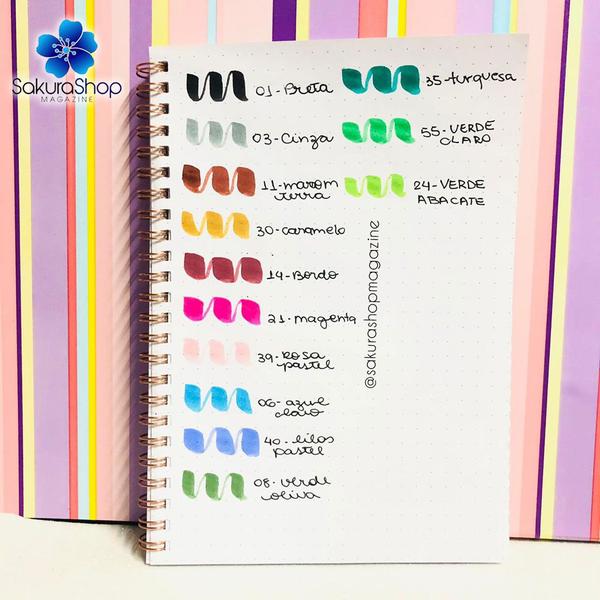 SakuraShop
MAGAZINE
01-Preta
03-Cinza
11-marom
terra
30-caramelo
14-Bordo
21-magenta
39-rosa
pastel
06-azul
claro
40-lilas
pastel
08-verde
oliva
35-turquesa
55-VERDE
CLARO
24-VERDE
ABACATE
@sakurashopmagazine